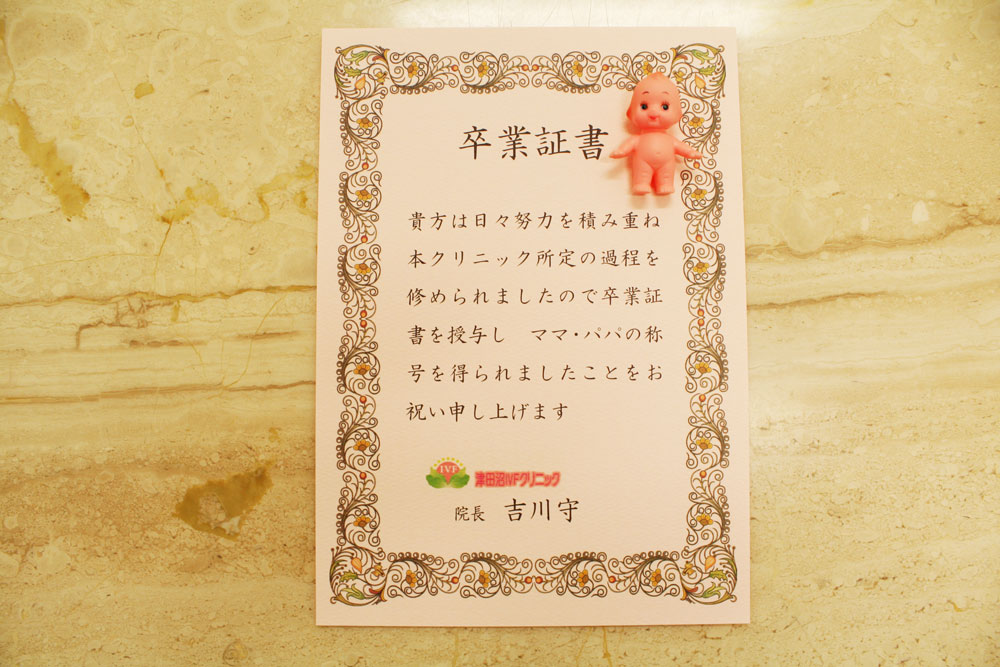 卒業証書
貴方は日々努力を積み重ね
本クリニック所定の過程を
修められましたので卒業証
書を授与し　ママ・パパの称
号を得られましたことをお
祝い申し上げます
IVF 津田沼IVFクリニック
院長　吉川守